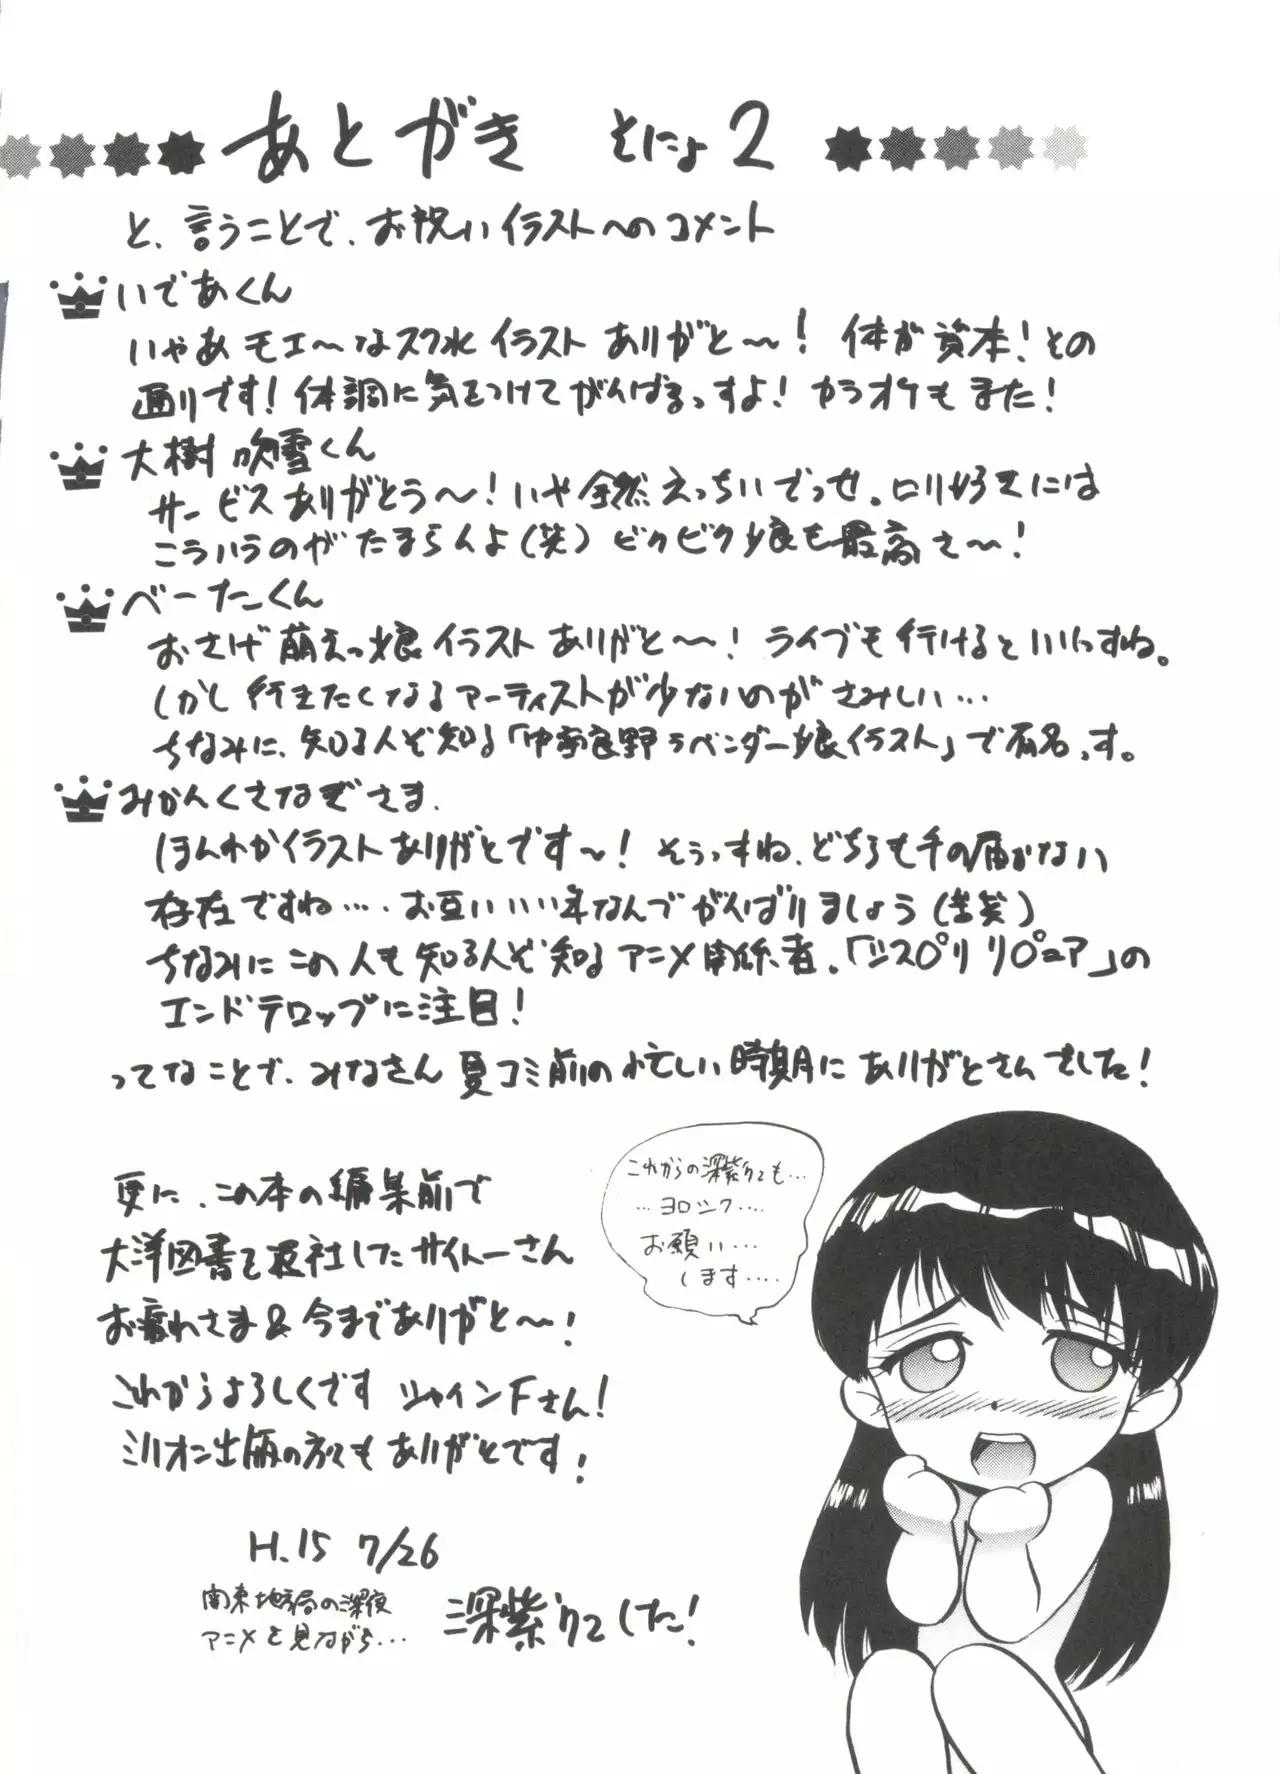 あとがき そにょ2
と、言うことで、お祝いイラストへのコメント
いであくん
いやあモエ〜なスク水イラストありがと〜!体が資本!との
通りです!体調に気をつけてがんばるっすよ!カラオケもまた!
大樹吹雪くん
サービスありがとう〜!いや全然えっちいでっせ。ロリ好きには
こうハラのがたまらんよ(笑)ビクビク娘も最高さ〜!
べーたくん
おさげ萌えっ娘イラストありがと〜!ライブも行けるといいっすね。
しかし行きたくなるアーティストが少ないのがさみしい…
ちなみに、知る人ぞ知る「中富良野ラベンダー娘イラスト」で有名っす。
みかんくさなぎさま.
ほんわかイラストありがとです〜!そうっすね、どちらも手の届かない
存在ですね….お互いいい年なんでがんばりましょう(苦笑)
ちなみにこの人も知る人ぞ知るアニメ関係者。「ジスプリ リピュア」の
エンドテロップに注目!
ってなことで、みなさん夏コミ前の忙しい時期にありがとさんでした!
更に、この本の編集前で
大洋図書を退社したサイトーさん
お疲れさま&今までありがと〜!
これからよろしくです シャインFさん!
ミリオン出版の方々もありがとです!
これからの深紫りくも…
…ヨロシク….
お願い…
します….
H.15 7/26
関東地方局の深夜
アニメを見ながら…
深紫りくでした!